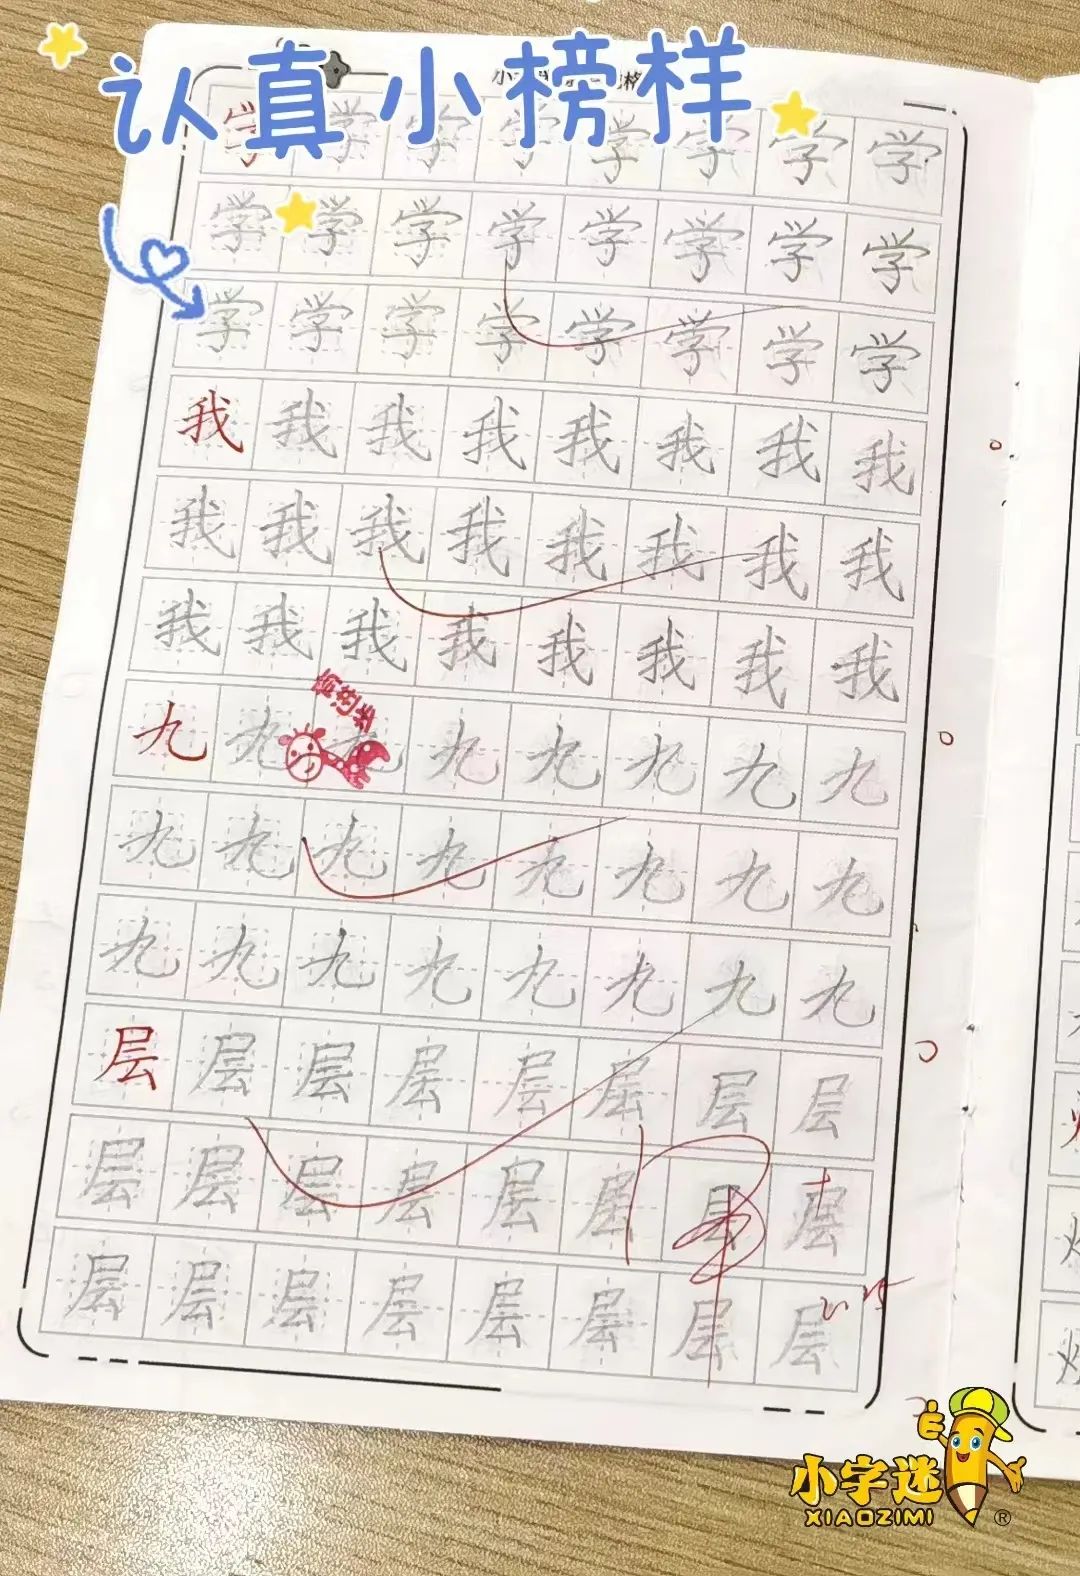 认真小榜样
学学学学学学学学
学学学学学学学学
学学学学学学学学
我我我我我我我我
我我我我我我我我
我我我我我我我我
九九九九九九九九
九九九九九九九九
九九九九九九九九
层层层层层层层层
层层层层层层层层
层层层层层层层层
小字迷
XIAOZIMI®